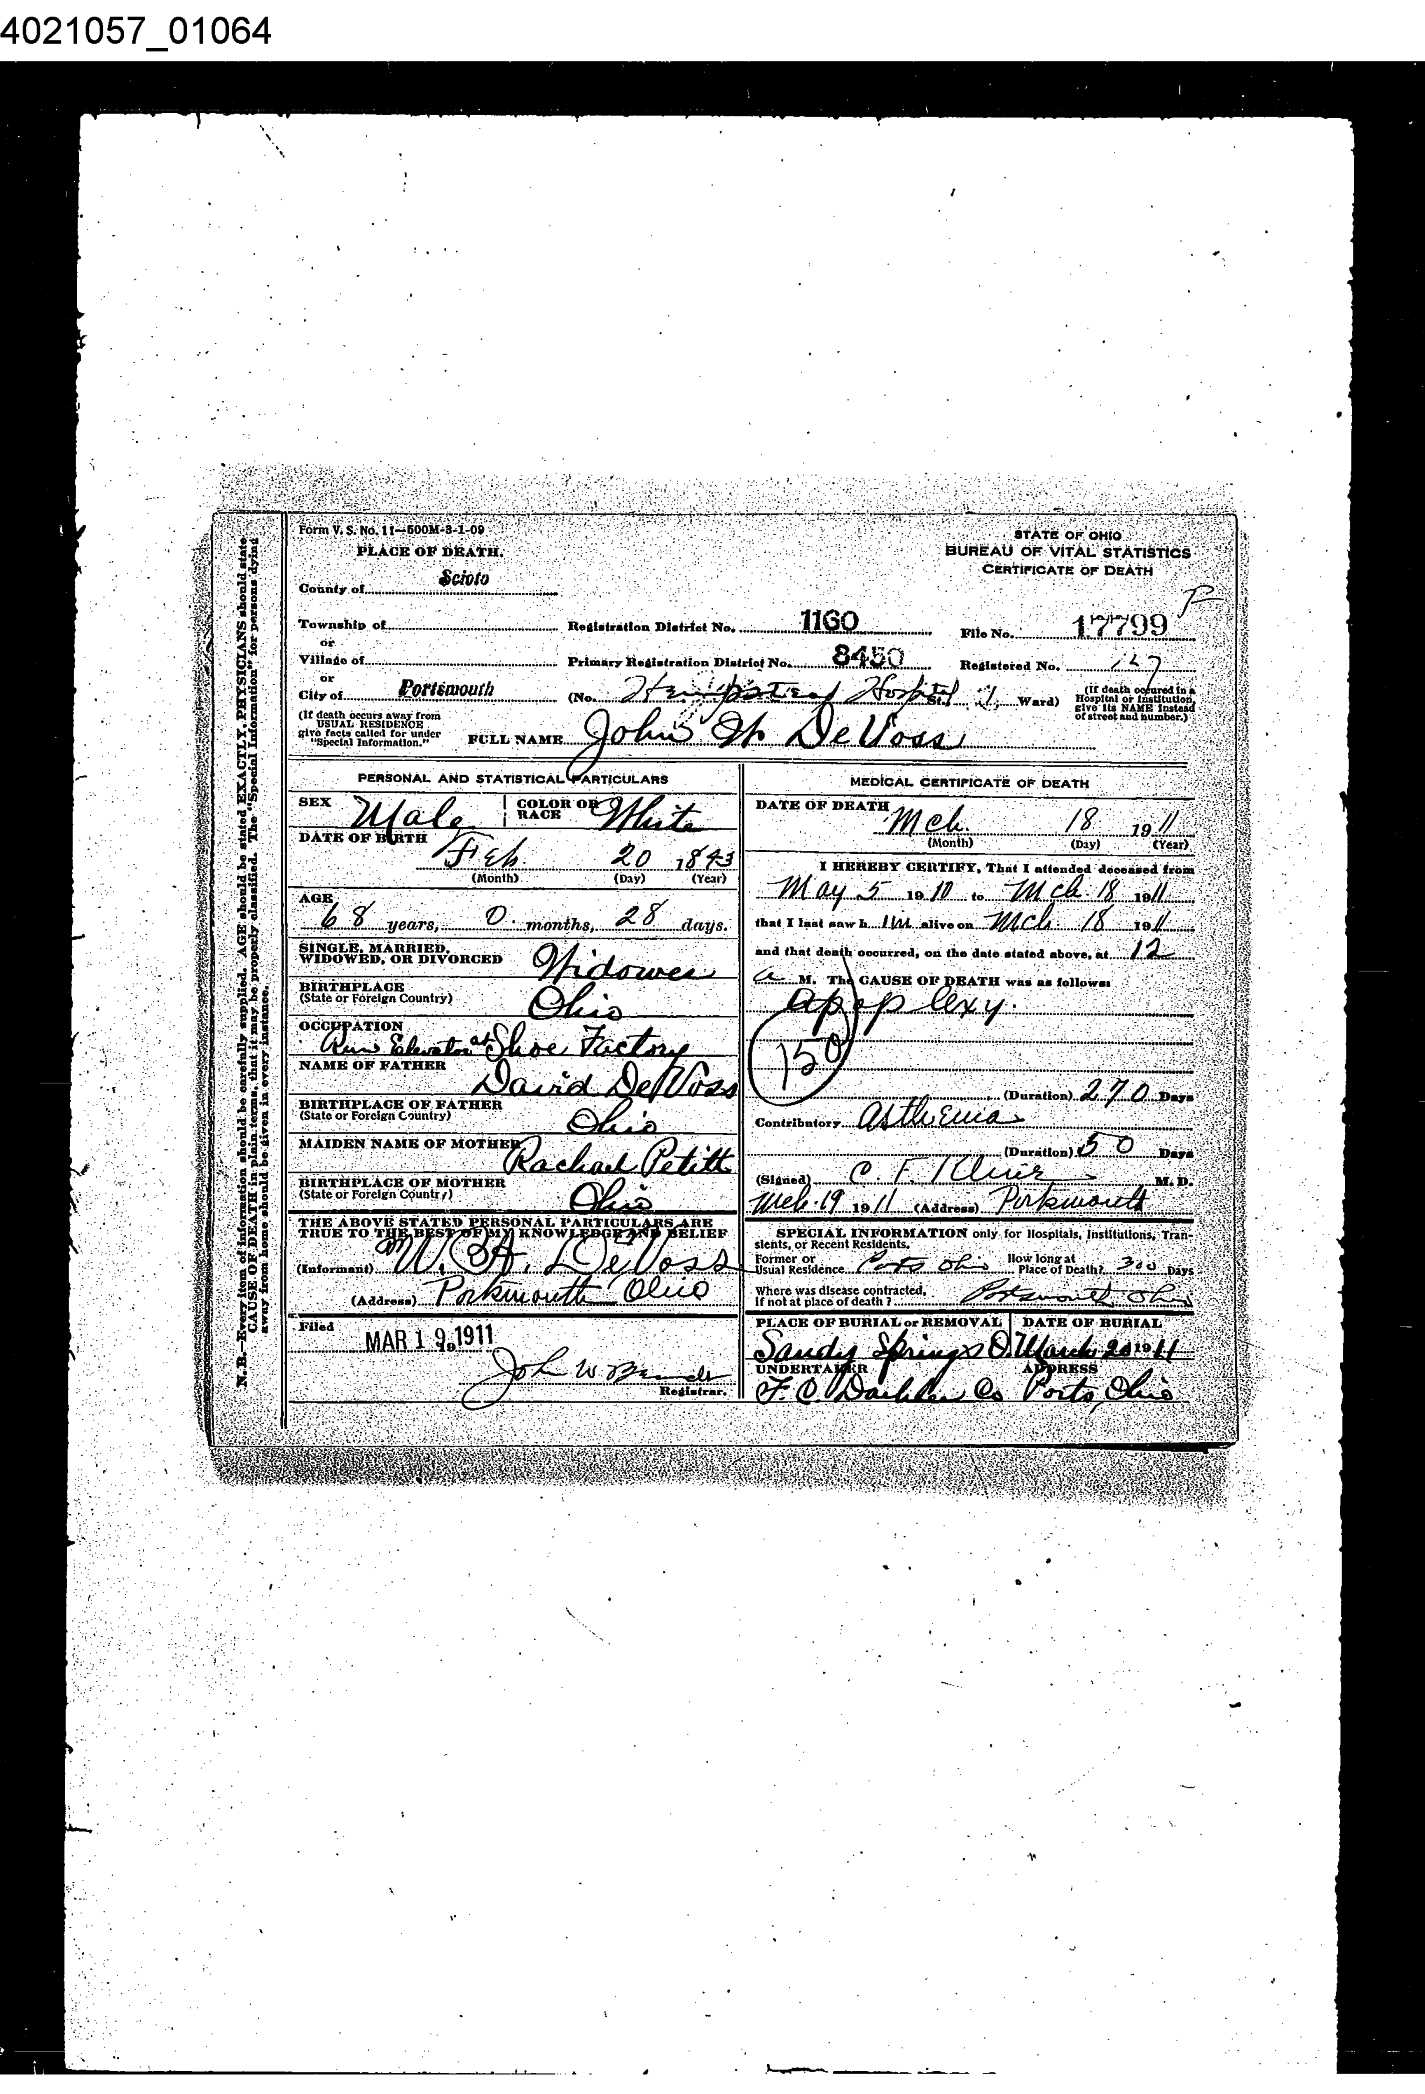 4021057_01064
Form V. S. No. 11—500M-3-1-09
PLACE OF DEATH.
STATE OF OHIO
BUREAU OF VITAL STATISTICS
CERTIFICATE OF DEATH
County of Scioto
Township of Registration District No. 1160 File No. 17799
or
Village of Primary Registration District No. 8450 Registered No. 127
or
City of Portsmouth (No. Hempstead Hospital St. Ward) (If death occured in a Hospital or Institution give its NAME instead of street and number.)
(If death occurs away from USUAL RESIDENCE give facts called for under "Special Information.") FULL NAME John W DeVoss
PERSONAL AND STATISTICAL PARTICULARS
SEX Male COLOR OR RACE White
DATE OF BIRTH Feb. 20 1843
(Month) (Day) (Year)
AGE
68 years, 0. months, 28 days.
SINGLE, MARRIED, WIDOWED, OR DIVORCED Widower
BIRTHPLACE (State or Foreign Country) Ohio
OCCUPATION
Run Elevator at Shoe Factory
NAME OF FATHER David DeVoss
BIRTHPLACE OF FATHER (State or Foreign Country) Ohio
MAIDEN NAME OF MOTHER Rachael Petitt
BIRTHPLACE OF MOTHER (State or Foreign Country) Ohio
THE ABOVE STATED PERSONAL PARTICULARS ARE
TRUE TO THE BEST OF MY KNOWLEDGE AND BELIEF
(Informant) DeVoss
(Address) Portsmouth Ohio
Filed MAR 19 1911
John W
Registrar.
MEDICAL CERTIFICATE OF DEATH
DATE OF DEATH
Mch. 18 1911
(Month) (Day) (Year)
I HEREBY CERTIFY, That I attended deceased from
May 5 1910 to Mch 18 1911
that I last saw h im alive on Mch. 18 1911
and that death occurred, on the date stated above, at 12
a M. The CAUSE OF DEATH was as follows:
Apoplexy.
150
(Duration) 270 Days
Contributory Asthenia
(Duration) 50 Days
(Signed) C. F. M. D.
Mch. 19 1911 (Address) Portsmouth
SPECIAL INFORMATION only for Hospitals, Institutions, Transients, or Recent Residents.
Former or Usual Residence Ports Ohio How long at Place of Death? 300 Days
Where was disease contracted, If not at place of death? Portsmouth Ohio
PLACE OF BURIAL or REMOVAL DATE OF BURIAL
Sandy Springs O. March 20 1911
UNDERTAKER ADDRESS
F. C. Daehler Co Ports, Ohio
N. B.—Every item of information should be carefully supplied. AGE should be stated EXACTLY. PHYSICIANS should state
CAUSE OF DEATH in plain terms, that it may be properly classified. The "Special Information" for persons dying
away from home should be given in every instance.